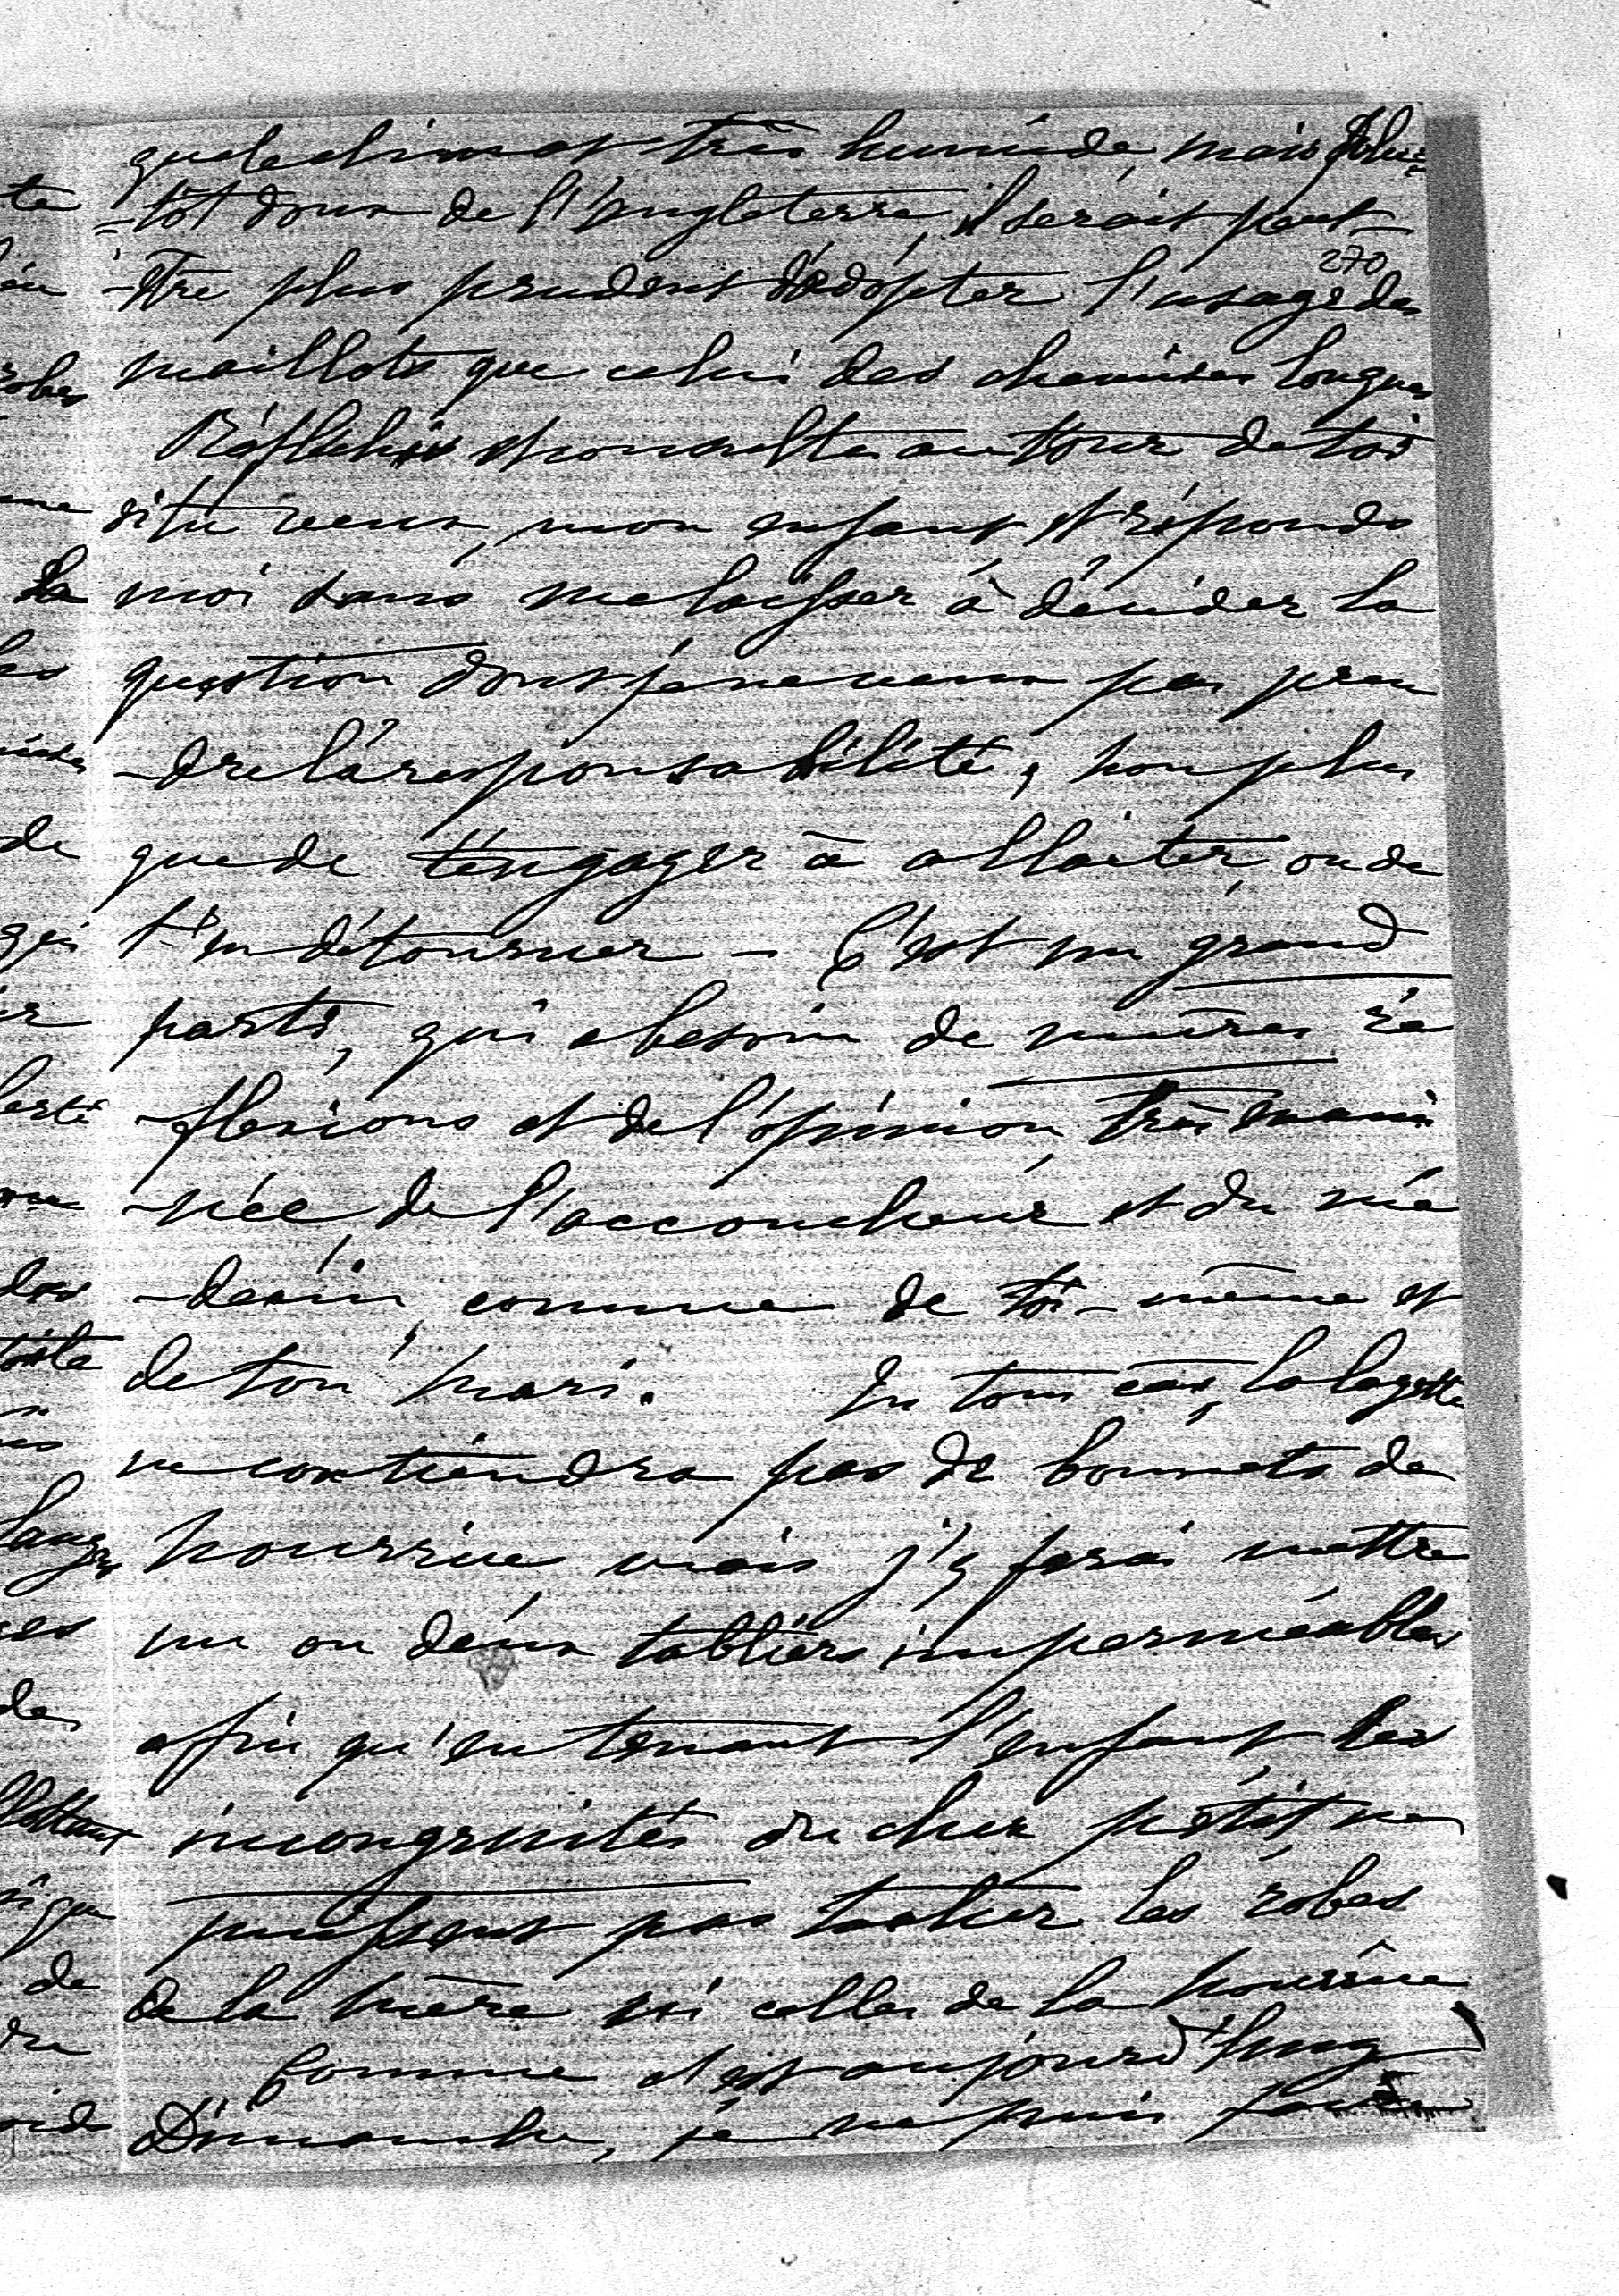 que le climat très humide, mais plu=
=tôt doux de l'Angleterre, il serait peut-
270
-être plus prudent d'adopter l'usage des
maillots que celui des chemises longues
Réfléchis et consulte autour de toi
si tu veux, mon enfant et réponds
moi sans me laisser à décider la
question dont je ne veux pas pren
-dre la responsabilité, non plus
que de t'engager à allaiter ou de
t'en détourner – C'est un grand
parti, qui a besoin de mûres ré
-flexions et de l'opinion très
-née de l'accoucheur et du mé
-decin, comme de toi-même et
de ton mari. En tous cas, la layette
ne contiendra pas de bonnets de
nourrice, mais j'y ferai mettre
un ou deux tabliers imperméables
afin qu'en tenant l'enfant les
incongruités du cher petit ne
puissent pas tacher les robes
de la mère ni celles de la nourrice
Comme c'est aujourd'huy
Dimanche, je ne puis faire